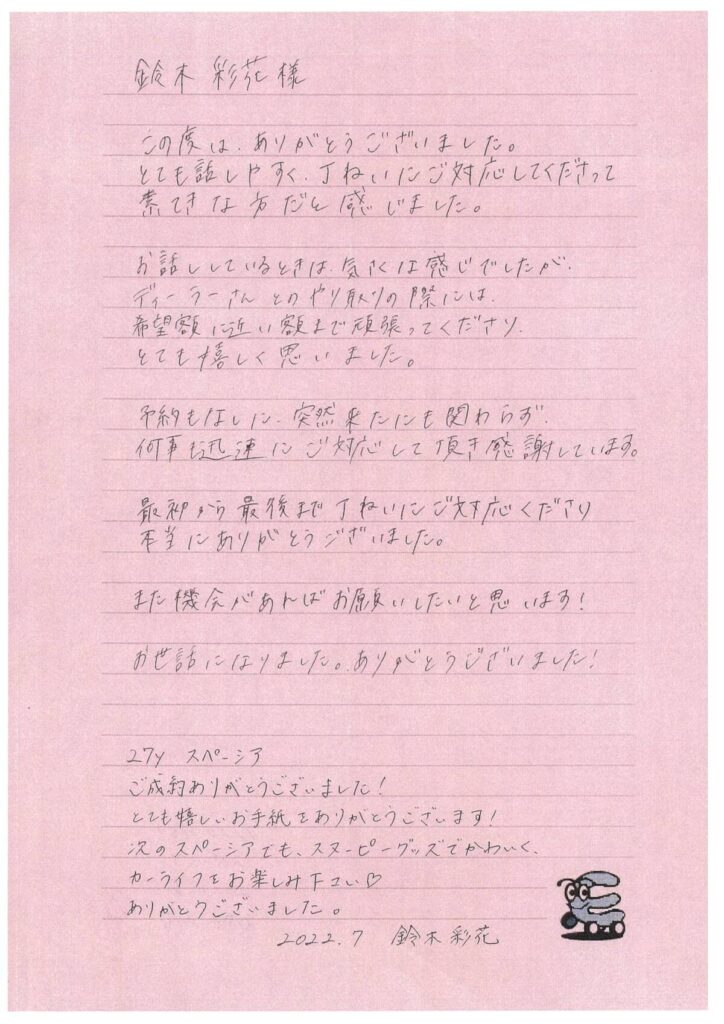 鈴木 彩花 様
この度は、ありがとうございました。
とても話しやすく、丁ねいにご対応してくださって
素てきな方だと感じました。
お話ししているときは、気さくな感じでしたが、
ディーラーさんとのやり取りの際には、
希望額に近い額まで頑張ってくださり、
とても嬉しく思いました。
予約もなしに、突然来たにも関わらず、
何事も迅速にご対応して頂き感謝しています。
最初から最後まで丁ねいにご対応くださり
本当にありがとうございました。
また機会があればお願いしたいと思います!
お世話になりました。ありがとうございました!
27y スペーシア
ご成約ありがとうございました!
とても嬉しいお手紙をありがとうございます!
次のスペーシアでも、スヌーピーグッズでかわいく、
カーライフをお楽しみ下さい♡
ありがとうございました。
2022.7 鈴木彩花